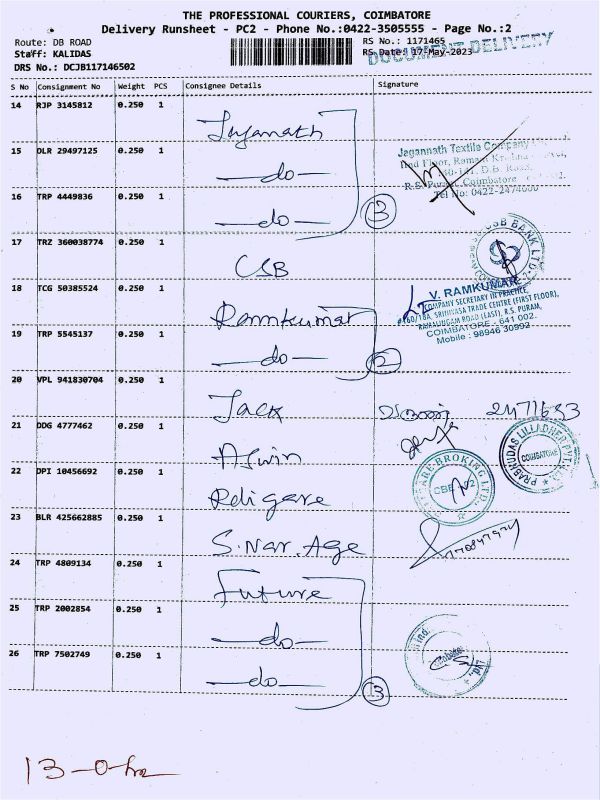 THE PROFESSIONAL COURIERS, COIMBATORE
Delivery Runsheet - PC2 - Phone No.:0422-3505555 - Page No.:2
Route: DB ROAD
RS No.: 1171465
Staff: KALIDAS
RS Date: 17-May-2023
DOCUMENT DELIVERY
DRS No.: DCJB117146502
S No Consignment No Weight PCS Consignee Details Signature
14 RJP 3145812 0.250 1
Jegannath Textile Company
15 DLR 29497125 0.250 1 —do—
D.B. Road,
R.S. Puram, Coimbatore
Tel No: 0422-2474000
16 TRP 4449836 0.250 1 —do— 3
17 TRZ 360038774 0.250 1 CSB
CSB BANK LTD
18 TCG 50385524 0.250 1 Ramkumar
V. RAMKUMAR
COMPANY SECRETARY IN PRACTICE,
SRINIVASA TRADE CENTRE (FIRST FLOOR),
RAMALINGAM ROAD (EAST), R.S. PURAM,
COIMBATORE - 641 002.
Mobile : 98946 30992
19 TRP 5545137 0.250 1 —do— 2
20 VPL 941830704 0.250 1 Jack
21 DDG 4777462 0.250 1 Aswin
PRABHUDAS LILLADHER PVT LTD
COIMBATORE
22 DPI 10456692 0.250 1 Religare
BROKING LTD.
CBE
23 BLR 425662885 0.250 1 S. Nar. Age
24 TRP 4809134 0.250 1 Future
25 TRP 2002854 0.250 1 —do—
26 TRP 7502749 0.250 1 —do— 3
Ltd.,